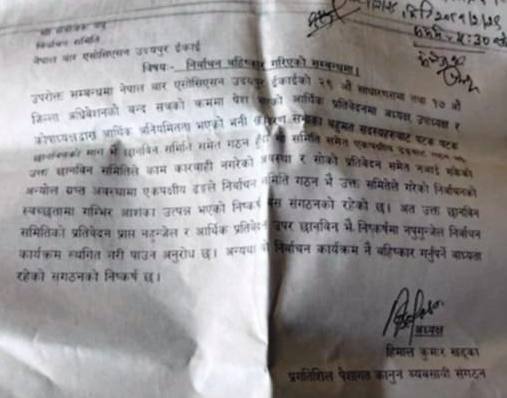 निर्वाचन समिति
नेपाल बार एसोसिएसन उदयपुर ईकाई
विषय:- निर्वाचन बहिष्कार गरिएको सम्बन्धमा।
उपरोक्त सम्बन्धमा नेपाल बार एसोसिएसन उदयपुर ईकाईको २९ औं साधारणसभा तथा १० औं
जिल्ला अधिवेशनको बन्द सत्रको क्रममा पेश को आर्थिक प्रतिवेदनमा अध्यक्ष उपाध्यक्ष र
कोषाध्यक्षद्वारा आर्थिक अनियमितता भएको भनी सभाका बहुमत सदस्यहरुबाट पटक पटक
छानविनको माग भै छानविन समिति समेत गठन समिति समेत एकपक्षीय
उक्त छानविन समितिले काम कारवाही नगरेको अवस्था र सोको प्रतिवेदन समेत नआई सकेको
अन्योल ग्रस्त अवस्थामा एकपक्षीय ढंगले निर्वाचन समिति गठन भै उक्त समितिले गरेको निर्वाचनको
स्वच्छतामा गम्भिर आशंका उत्पन्न भएको निष्कर्ष यस संगठनको रहेको छ। अत उक्त छानविन
समितिको प्रतिवेदन प्राप्त नहुन्जेल र आर्थिक प्रतिवेदन उपर छानविन भै निष्कर्षमा नपुगुन्जेल निर्वाचन
कार्यक्रम स्थगित गरी पाउन अनुरोध छ। अन्यथा निर्वाचन कार्यक्रम नै बहिष्कार गर्नुपर्ने बाध्यता
रहेको संगठनको निष्कर्ष छ।
अध्यक्ष
हिमाल कुमार खड्का
प्रगतिशिल पेशागत कानुन व्यवसायी संगठन